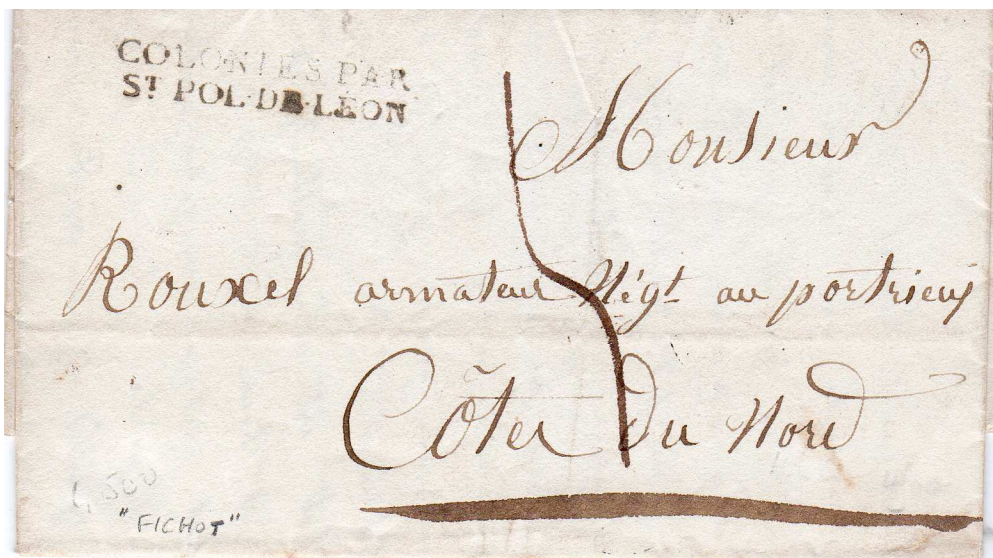 COLONIES PAR
ST POL-DE-LEON
Monsieur
Rouxel armateur Négt au portrieux
Côtes du Nord
5
4,500
"FICHOT"